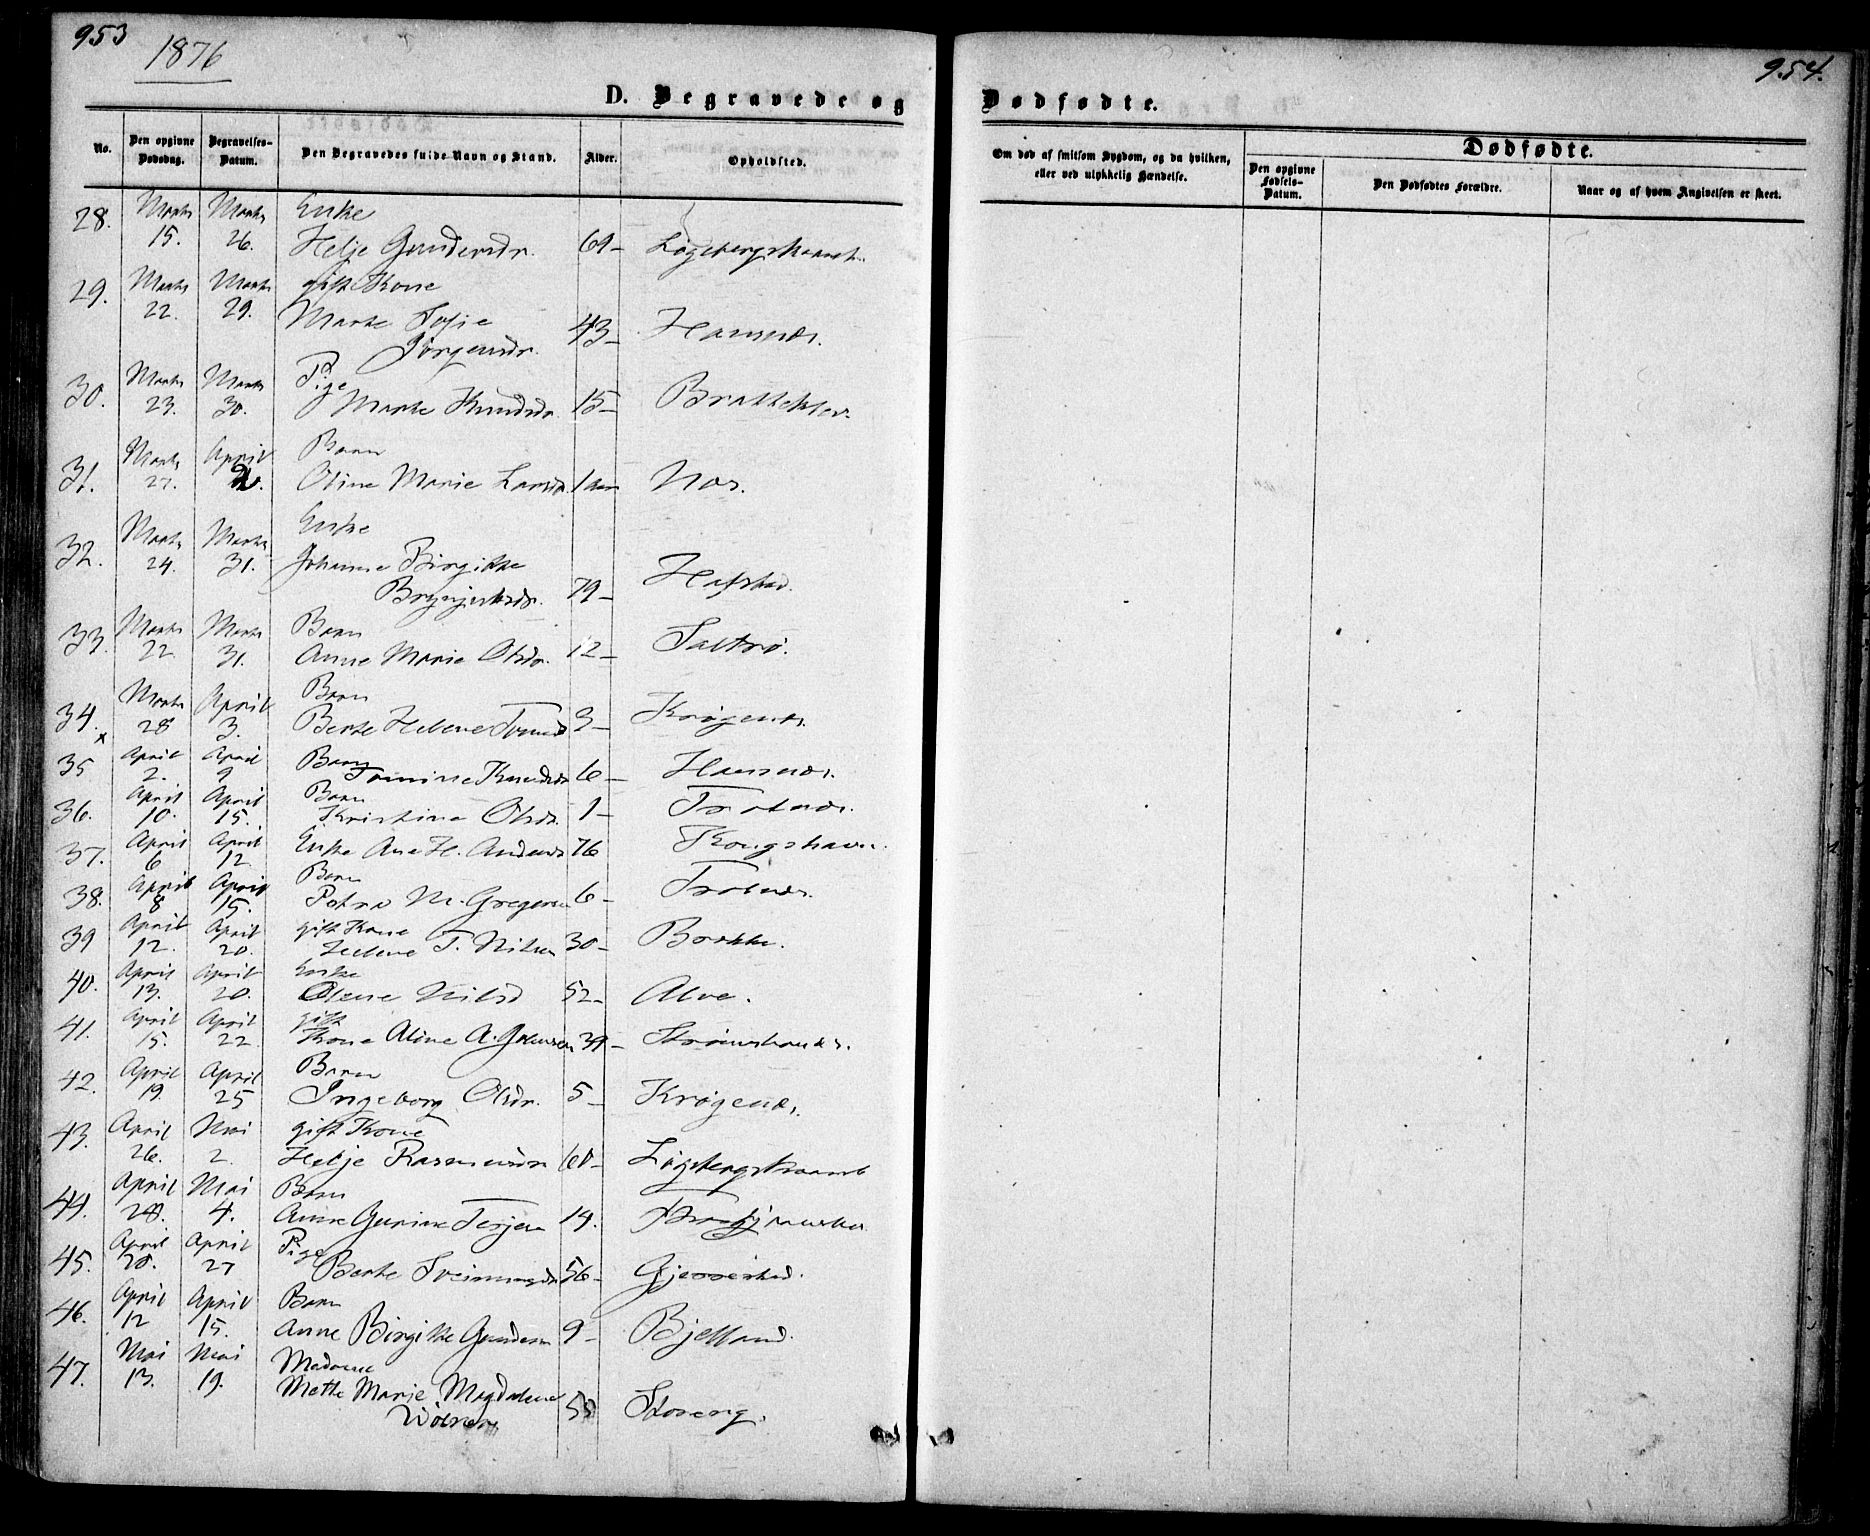 953
1876
954.
D. Begravede og Dødfødte.
No.
Den opgivne Dødsdag.
Begravelses-Datum.
Den Begravedes fulde Navn og Stand.
Alder.
Opholdssted.
Om død af smitsom Sygdom, og da hvilken, eller ved ulykkelig Hændelse.
Dødfødte.
Den opgivne Fødsels-Datum.
Den Dødfødtes Forældre.
Naar og af hvem Angivelsen er skeet.
28. Marts 15. Marts 26. Enke
Helje Gundersdr. 69-
29. Marts 22. Marts 29. gift Kone
Marte Sofie
Jörgensdr. 43-
30. Marts 23. Marts 30. Pige
Marte Knudsdr. 15- Bratteklev
31. Marts 27. April 2. Barn
Oline Marie Larsdr. 1 aar Næs.
32. Marts 24. Marts 31. Enke
Johanne Birgitte
79- Hafstad.
33. Marts 22. Marts 31. Barn
Anne Marie Olsdr. 12- Saltrø.
34. Marts 28 April 3. Barn
Berte Helene 3- Krøgenæs
35 April 2. April 9 Barn
Knudsdr 6-
36. April 10. April 15. Barn
Kristine Olsdr. 1-
37. April 6 April 12 Enke Ane H. Anders 76 Kongshavn.
38. April 8 April 15. Barn
Petra M. Gregersen 6-
39 April 12. April 20. gift Kone
Helene T. Nilsen 30-
40. April 13. April 20. Enke
Olene Nilsd 52- Alve.
41. April 15. April 22 gift
Kone Aline A. 39-
42. April 19. April 25 Barn
Ingeborg Olsdr. 5- Krøgenæs.
43. April 26. Mai 2. gift Kone
Helje Rasmusdr 60-
44. April 28. Mai 4. Barn
Anne Gurine Terjesen 14.
45. April 20. April 27 Pige
Berte 56-
46. April 12 April 15. Barn
Anne Birgitte Gundersen 9- Bjelland.
47. Mai 13. Mai 19. Madame
Mette Marie Magdalene
Storeng.